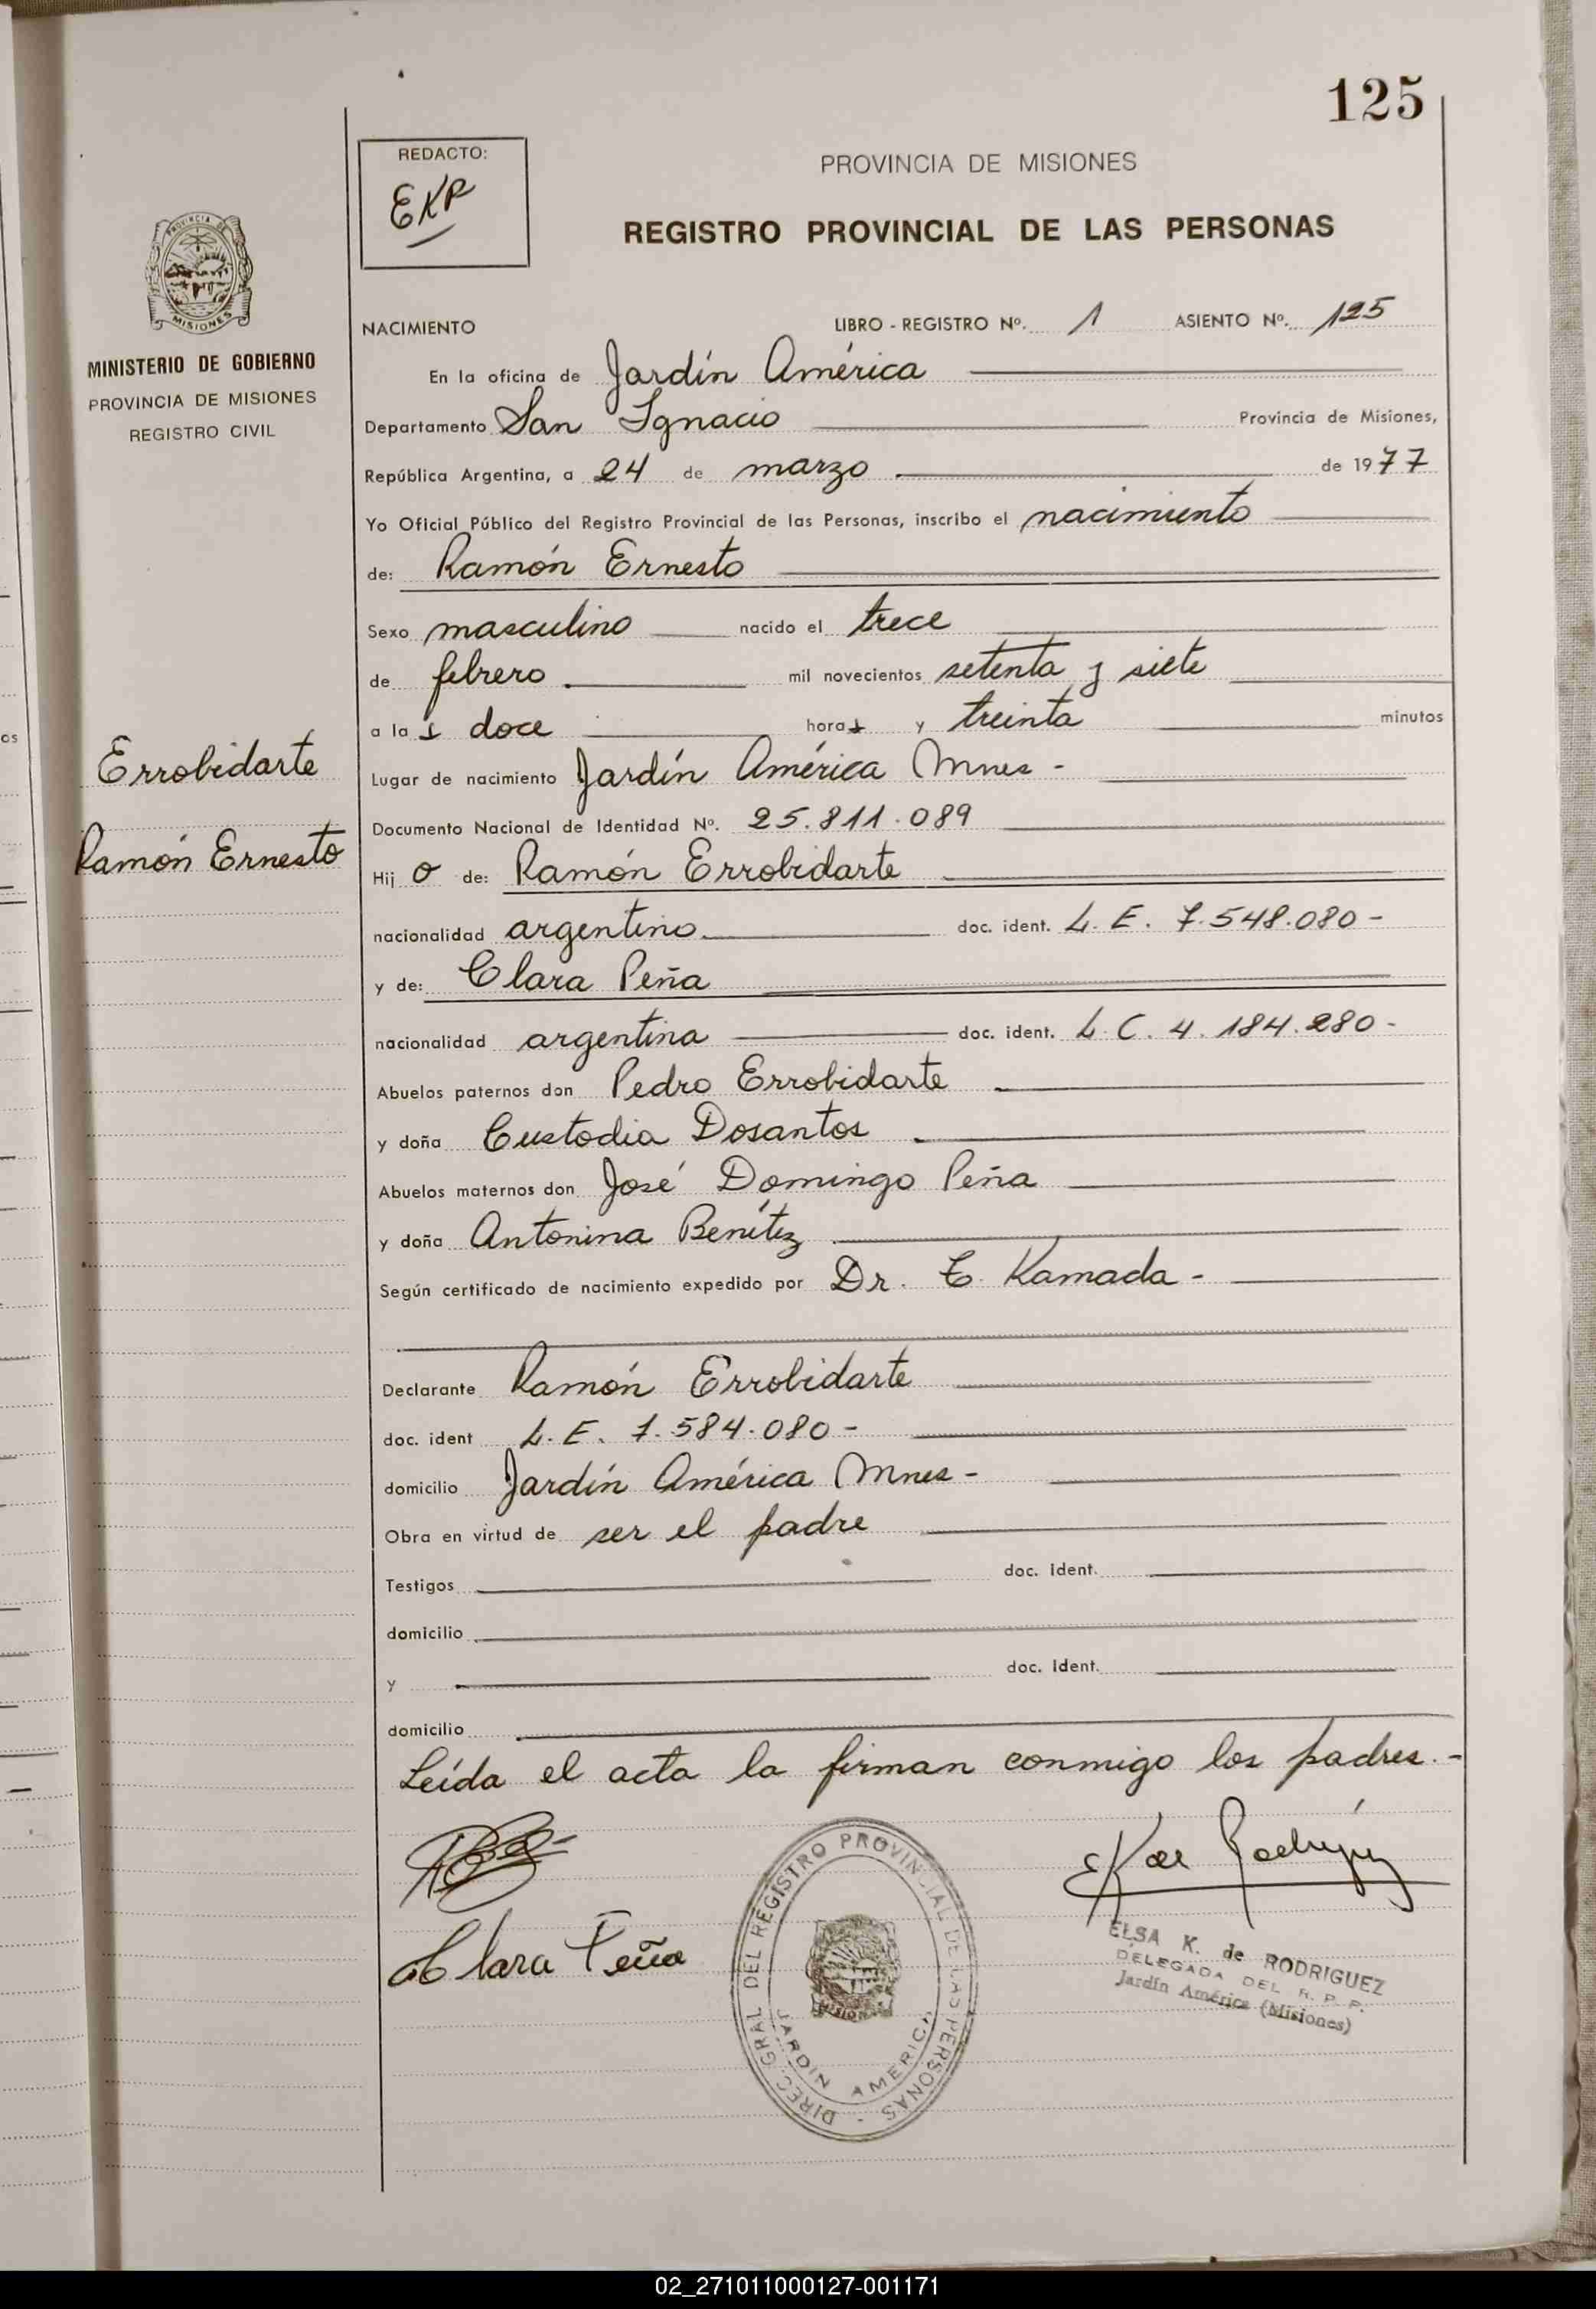 125
REDACTO:
EKR
PROVINCIA DE MISIONES
REGISTRO PROVINCIAL DE LAS PERSONAS
PROVINCIA DE
MISIONES
MINISTERIO DE GOBIERNO
PROVINCIA DE MISIONES
REGISTRO CIVIL
NACIMIENTO LIBRO - REGISTRO Nº. 1 ASIENTO Nº. 125
En la oficina de Jardín América
Departamento San Ignacio Provincia de Misiones,
República Argentina, a 24 de marzo de 1977
Yo Oficial Público del Registro Provincial de las Personas, inscribo el nacimiento
de: Ramón Ernesto
Sexo masculino nacido el trece
de febrero mil novecientos setenta y siete
a las doce horas y treinta minutos
Errobidarte
Ramón Ernesto
Lugar de nacimiento Jardín América Mnes -
Documento Nacional de Identidad Nº. 25.811.089
Hijo de: Ramón Errobidarte
nacionalidad argentino doc. ident. L. E. 7.548.080 -
y de: Clara Peña
nacionalidad argentina doc. ident. L. C. 4.184.280 -
Abuelos paternos don Pedro Errobidarte
y doña Custodia Dosantos
Abuelos maternos don José Domingo Peña
y doña Antonina Benítez
Según certificado de nacimiento expedido por Dr. E. Kamada -
Declarante Ramón Errobidarte
doc. ident L. E. 7.584.080 -
domicilio Jardín América Mnes -
Obra en virtud de ser el padre
Testigos doc. ident.
domicilio
y doc. ident.
domicilio
Leída el acta la firman conmigo los padres. -
Clara Peña
DIREC. GRAL DEL REGISTRO PROVINCIAL DE LAS PERSONAS -
JARDIN AMERICA
ELSA K. de RODRIGUEZ
DELEGADA DEL R. P. P.
Jardín América (Misiones)
02_271011000127-001171